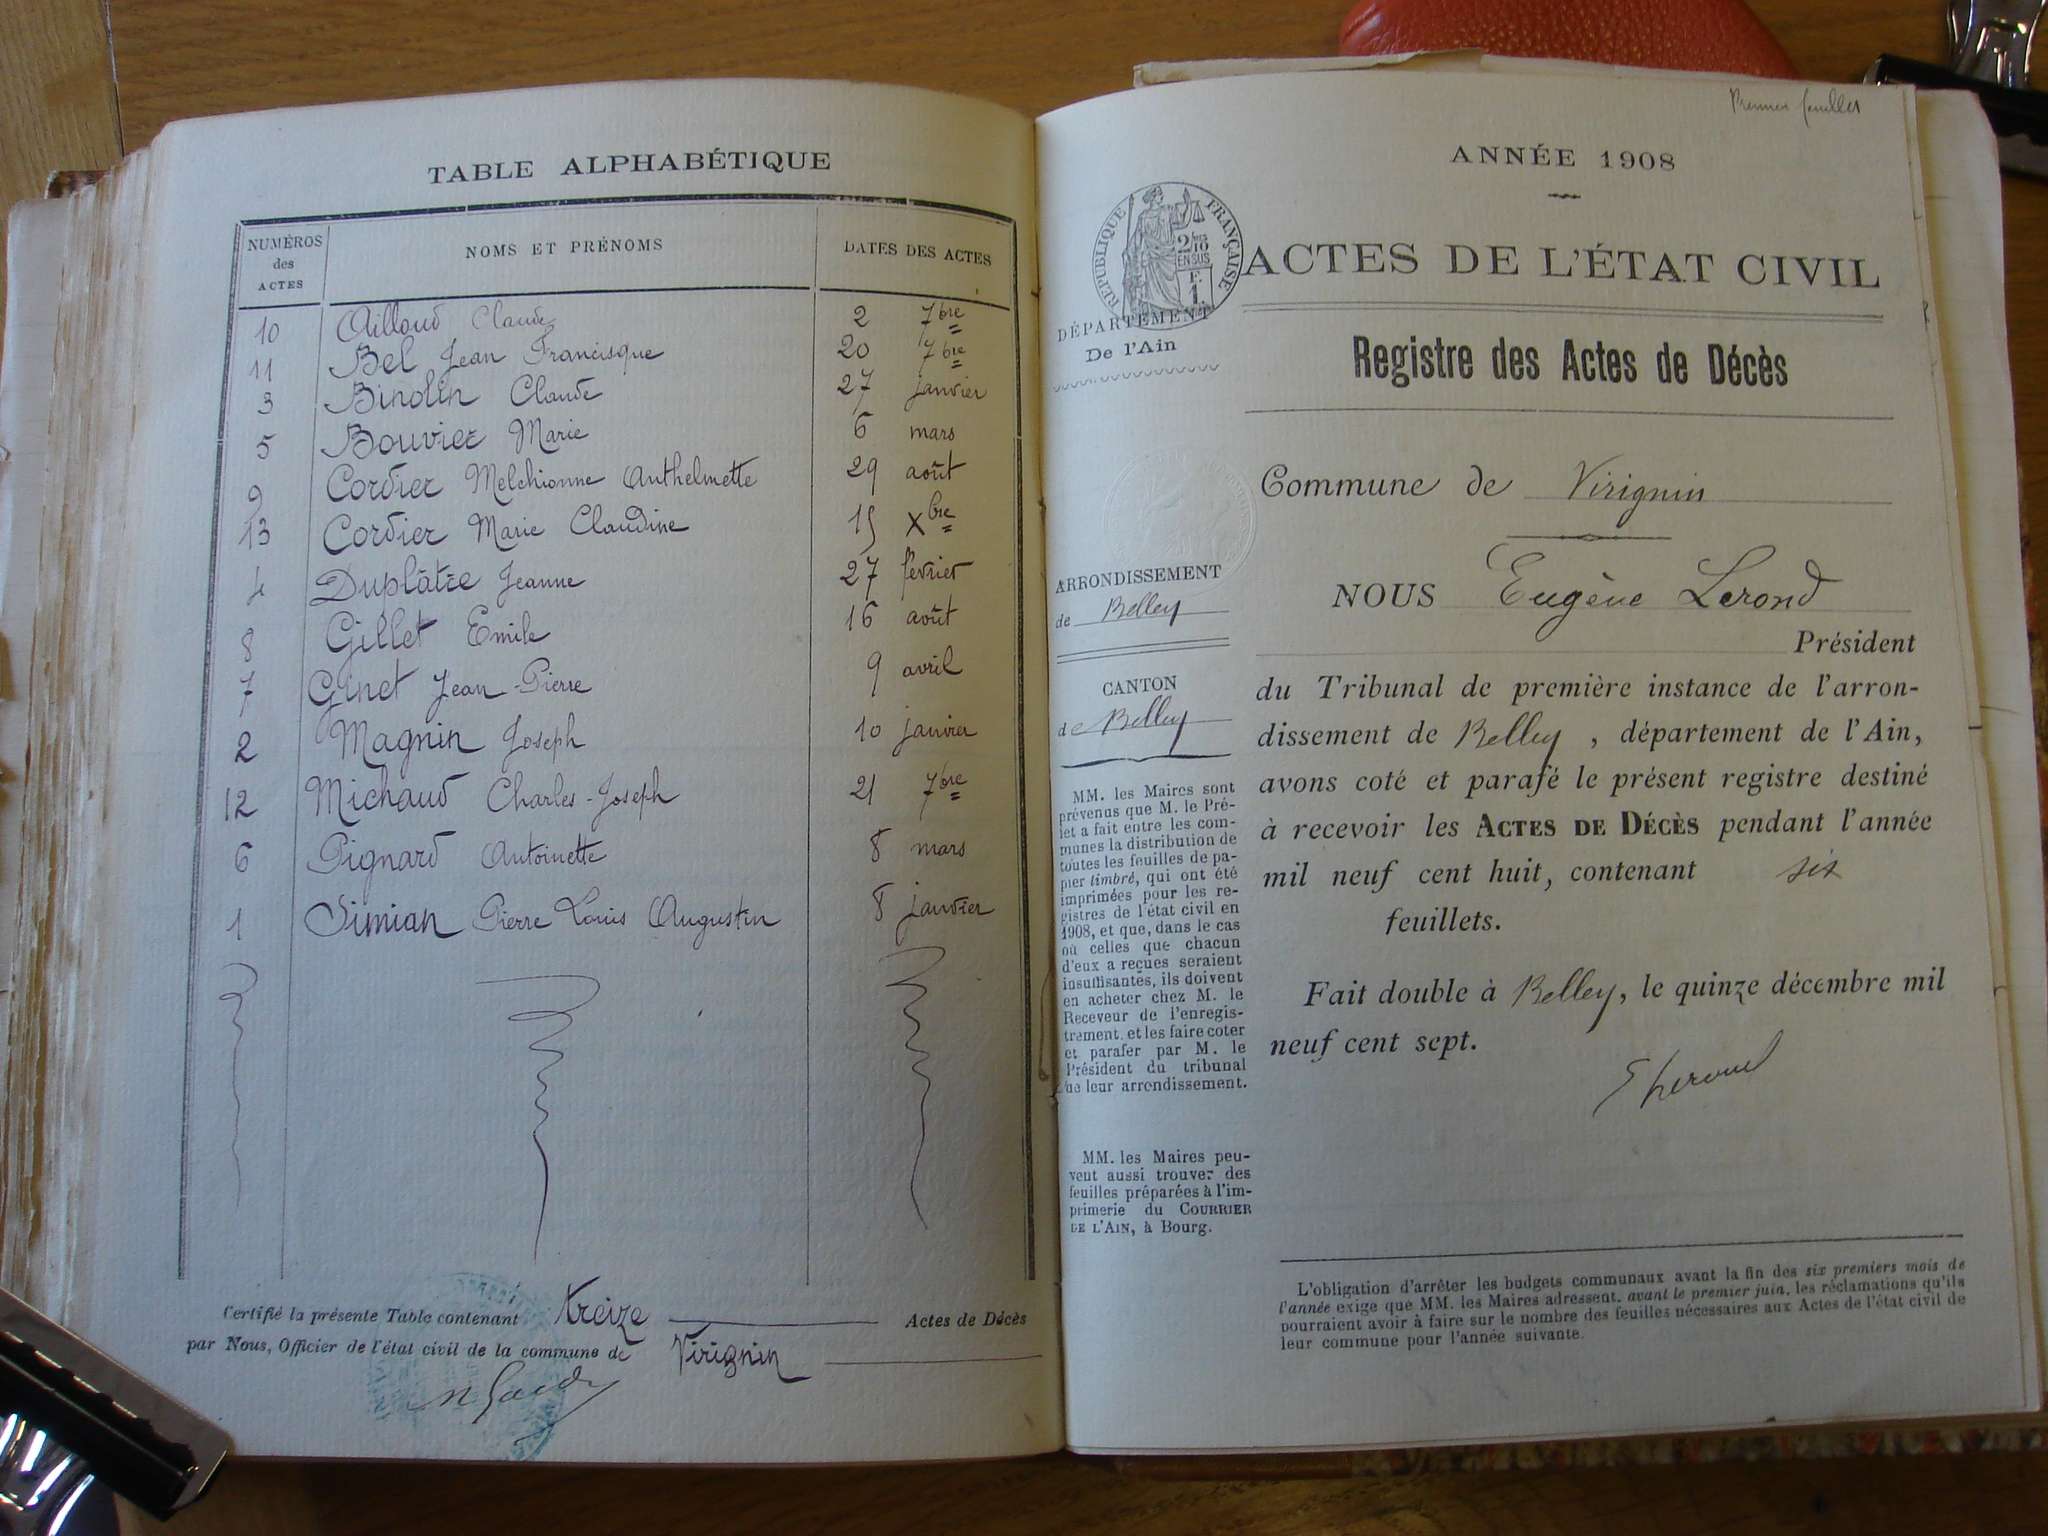 TABLE ALPHABÉTIQUE
NUMÉROS des ACTES | NOMS ET PRÉNOMS | DATES DES ACTES
10 Ailloud Claude 2 7bre
11 Bel Jean Francisque 20 7bre
3 Binolin Claude 27 janvier
5 Bouvier Marie 6 mars
9 Cordier Melchionne Anthelmette 29 août
13 Cordier Marie Claudine 15 Xbre
4 Duplâtre Jeanne 27 février
8 Gillet Emile 16 août
7 Ginet Jean-Pierre 9 avril
2 Magnin Joseph 10 janvier
12 Michaud Charles-Joseph 21 7bre
6 Pignard Antoinette 8 mars
1 Simian Pierre Louis Augustin 8 janvier
Certifié la présente Table contenant treize Actes de Décès
par Nous, Officier de l'état civil de la commune de Virignin
Premier feuillet
ANNÉE 1908
RÉPUBLIQUE FRANÇAISE
2/10 EN SUS
F. 1.
ACTES DE L'ÉTAT CIVIL
DÉPARTEMENT
De l'Ain
Registre des Actes de Décès
Commune de Virignin
ARRONDISSEMENT
de Belley
CANTON
de Belley
MM. les Maires sont
prévenus que M. le Pré-
fet a fait entre les com-
munes la distribution de
toutes les feuilles de pa-
pier timbré, qui ont été
imprimées pour les re-
gistres de l'état civil en
1908, et que, dans le cas
où celles que chacun
d'eux a reçues seraient
insuffisantes, ils doivent
en acheter chez M. le
Receveur de l'enregis-
trement, et les faire coter
et parafer par M. le
Président du tribunal
de leur arrondissement.
MM. les Maires peu-
vent aussi trouver des
feuilles préparées à l'im-
primerie du COURRIER
DE L'AIN, à Bourg.
NOUS Eugène Lerond
Président
du Tribunal de première instance de l'arron-
dissement de Belley, département de l'Ain,
avons coté et parafé le présent registre destiné
à recevoir les ACTES DE DÉCÈS pendant l'année
mil neuf cent huit, contenant six
feuillets.
Fait double à Belley, le quinze décembre mil
neuf cent sept.
E Lerond
L'obligation d'arrêter les budgets communaux avant la fin des six premiers mois de
l'année exige que MM. les Maires adressent, avant le premier juin, les réclamations qu'ils
pourraient avoir à faire sur le nombre des feuilles nécessaires aux Actes de l'état civil de
leur commune pour l'année suivante.